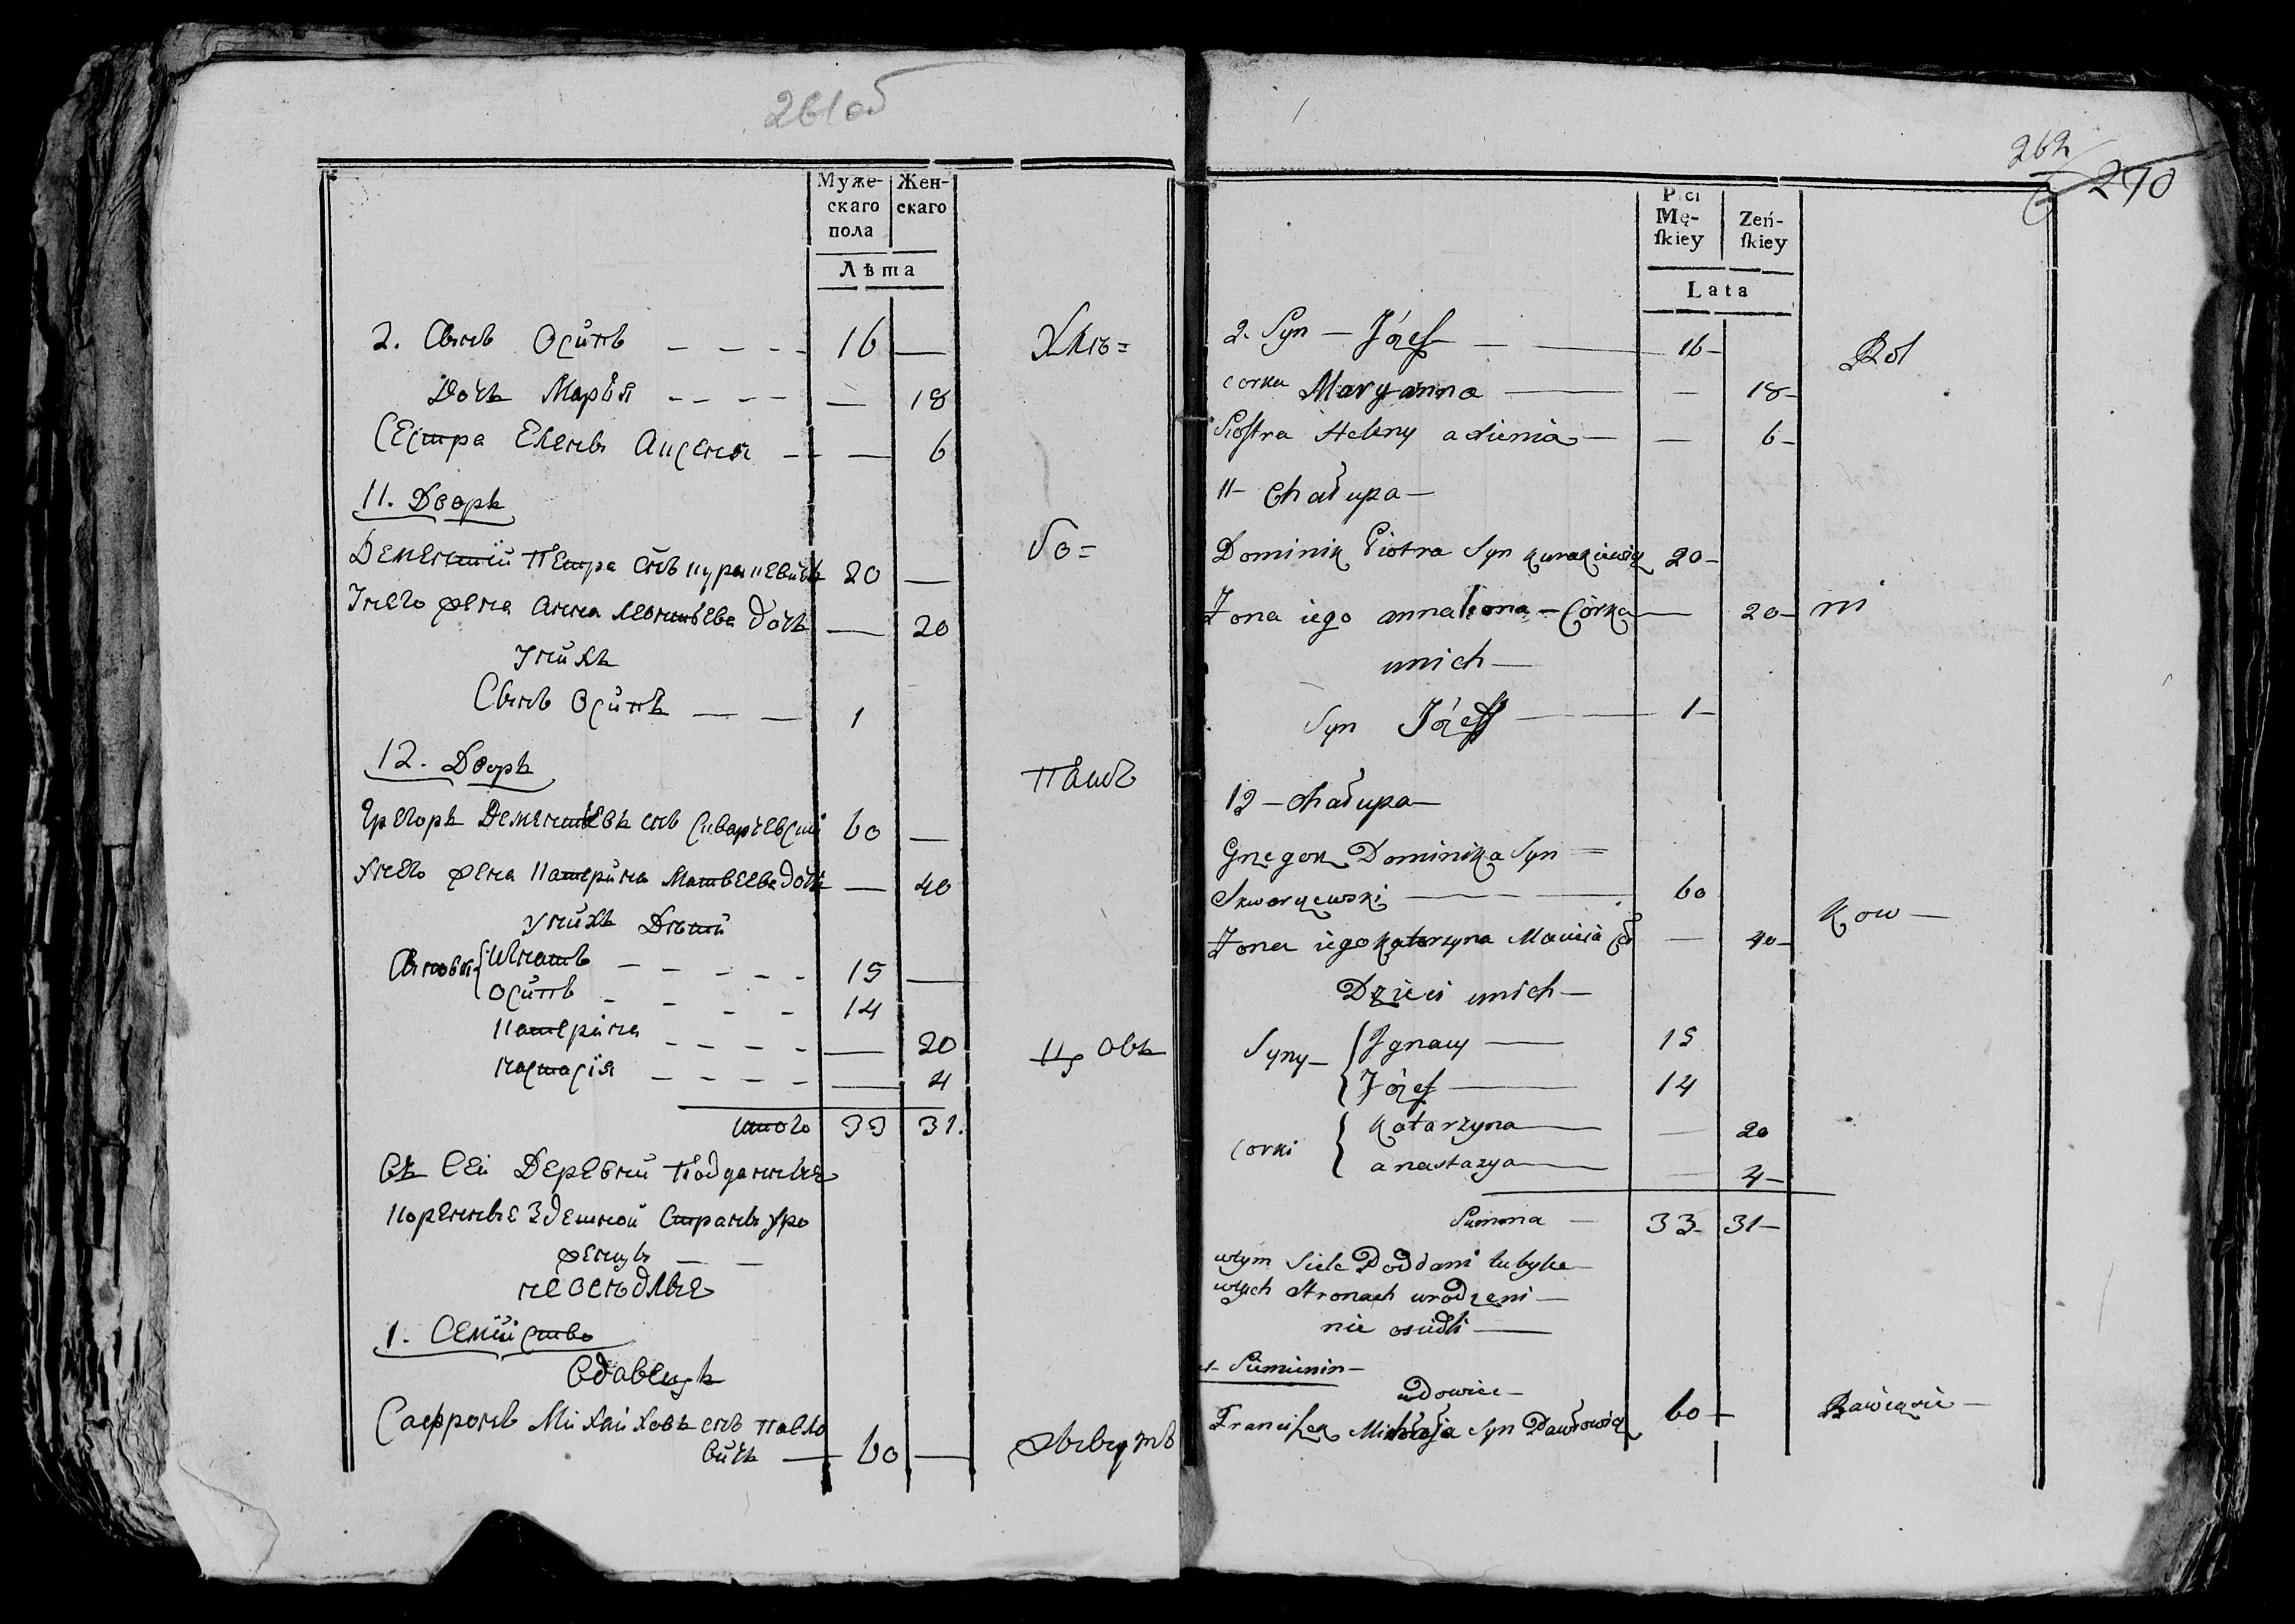 261об
Муже-
скаго
пола
Жен-
скаго
Лѣта
2. Сынъ Осипъ — — — — 16 —
Хлѣ=
Дочь Марья — — — — — 18
Сестра Елены Аксенья — — 6
11. Дворъ
бо=
Дементий Петра снъ Куракевичъ 20 —
Унего жена Анна Леонтьева дочь — 20
Унихъ
Сынъ Осипъ — — 1
12. Дворъ
паш
Грегоръ Дементьевъ снъ Скварчевски 60 —
Унего жена Катерина Матвеева дочь — 40
Унихъ Дети
Сыновья { Игнатъ — — — — — 15 —
Осипъ — — — — 14
Катерина — — — — — 20
цовъ
Настасія — — — — — 4
итого 33 31.
Въ сеи Деревни подданные
коренные здешной страны уро
женцы — —
неоседлые
1. Семийство
Вдавецъ
Сафронъ Михайловъ снъ Павло
вичъ — 60 —
живутъ
262
270
Płci
Mę-
ſkiey
Zeń-
ſkiey
Lata
2. Syn — Józef — — 16 —
Rol
corka Maryanna — — 18 —
Siostra Heleny — — 6 —
11 — Chałupa —
Dominik Piotra Syn Kurakiewicz 20 —
Zona iego anna Leona — Córka — 20 —
ni
unich —
Syn Józeff — 1 —
12 — chałupa —
Grzegorz Dominika Syn =
Skwarczewski — 60
Kow —
Zona iego Katarzyna Macieia Có — 40 —
Dzieci unich —
Syny — { Jgnacy — 15
Józef — 14
Corki { Katarzyna — — 20
anastazya — — 4 —
Summa — 33 — 31 —
wtym Siele Poddani tubylce —
wtych Stronach urodzeni —
nie osiedli —
wdowiec —
Franciszek Michała Syn Pawłowicz 60 —